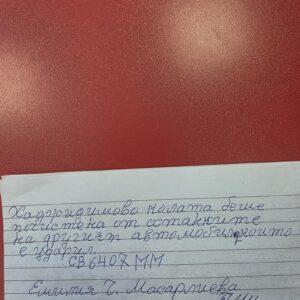 Хаджидимово колата беше
почистена от останките
на другият автомобил, който
е ударил.
СВ6407ХММ
Емилия Г. Масарлиева